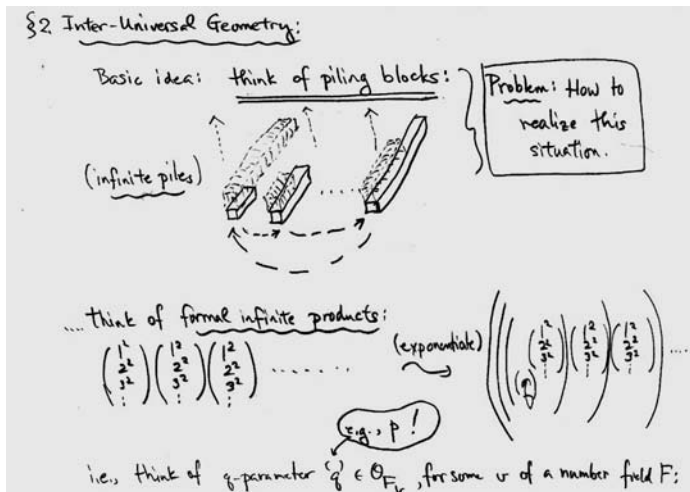 §2. Inter-Universal Geometry:
Basic idea: think of piling blocks:
Problem: How to
realize this
situation.
(infinite piles)
.... think of formal infinite products:
(1² 2² 3² ⋮) (1² 2² 3² ⋮) (1² 2² 3² ⋮) ........
(exponentiate)
((((q) (1² 2² 3² ⋮)) (1² 2² 3² ⋮)) (1² 2² 3² ⋮)) ....
e.g., p!
i.e., think of q-parameter "q" ∈ O_F_v, for some v of a number field F: